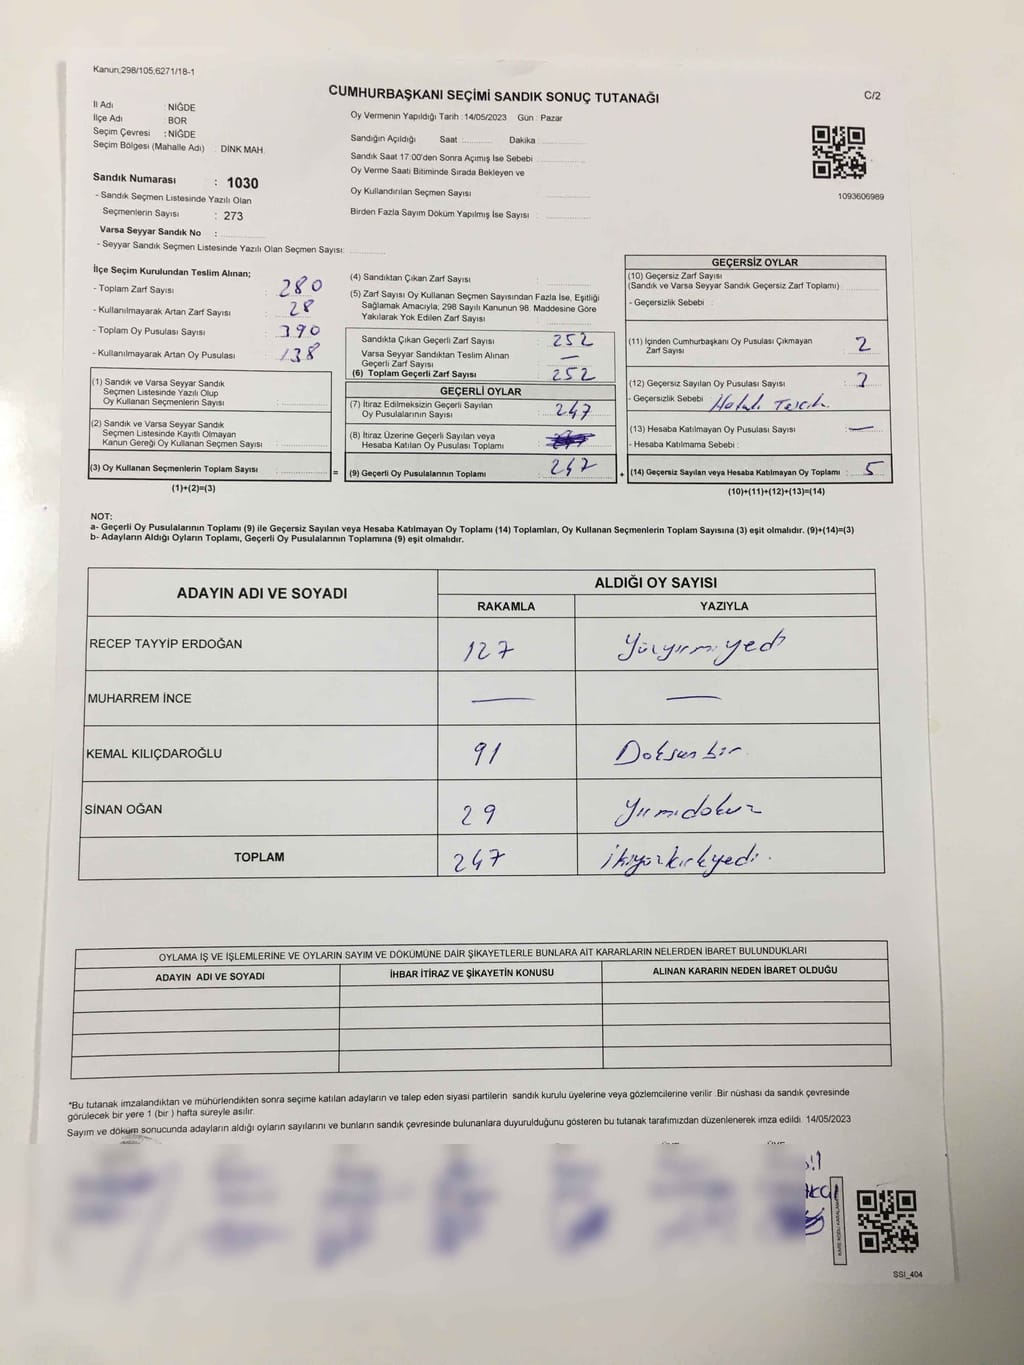 Kanun;298/105;6271/18-1
CUMHURBAŞKANI SEÇİMİ SANDIK SONUÇ TUTANAĞI
C/2
İl Adı : NİĞDE
İlçe Adı : BOR
Seçim Çevresi : NİĞDE
Seçim Bölgesi (Mahalle Adı) : DİNK MAH.
Oy Vermenin Yapıldığı Tarih : 14/05/2023 Gün : Pazar
Sandığın Açıldığı Saat : Dakika :
Sandık Saat 17:00'den Sonra Açımış İse Sebebi
Oy Verme Saati Bitiminde Sırada Bekleyen ve
Oy Kullandırılan Seçmen Sayısı
Birden Fazla Sayım Döküm Yapılmış İse Sayısı :
1093606989
Sandık Numarası : 1030
- Sandık Seçmen Listesinde Yazılı Olan
Seçmenlerin Sayısı : 273
Varsa Seyyar Sandık No :
- Seyyar Sandık Seçmen Listesinde Yazılı Olan Seçmen Sayısı:
İlçe Seçim Kurulundan Teslim Alınan;
- Toplam Zarf Sayısı : 280
- Kullanılmayarak Artan Zarf Sayısı : 28
- Toplam Oy Pusulası Sayısı : 390
- Kullanılmayarak Artan Oy Pusulası : 138
(1) Sandık ve Varsa Seyyar Sandık
Seçmen Listesinde Yazılı Olup
Oy Kullanan Seçmenlerin Sayısı :
(2) Sandık ve Varsa Seyyar Sandık
Seçmen Listesinde Kayıtlı Olmayan
Kanun Gereği Oy Kullanan Seçmen Sayısı :
(3) Oy Kullanan Seçmenlerin Toplam Sayısı :
(1)+(2)=(3)
(4) Sandıktan Çıkan Zarf Sayısı :
(5) Zarf Sayısı Oy Kullanan Seçmen Sayısından Fazla İse, Eşitliği
Sağlamak Amacıyla; 298 Sayılı Kanunun 98. Maddesine Göre
Yakılarak Yok Edilen Zarf Sayısı :
Sandıkta Çıkan Geçerli Zarf Sayısı : 252
Varsa Seyyar Sandıktan Teslim Alınan
Geçerli Zarf Sayısı : —
(6) Toplam Geçerli Zarf Sayısı : 252
GEÇERLİ OYLAR
(7) İtiraz Edilmeksizin Geçerli Sayılan
Oy Pusulalarının Sayısı : 247
(8) İtiraz Üzerine Geçerli Sayılan veya
Hesaba Katılan Oy Pusulası Toplamı :
= (9) Geçerli Oy Pusulalarının Toplamı : 247 +
GEÇERSİZ OYLAR
(10) Geçersiz Zarf Sayısı
(Sandık ve Varsa Seyyar Sandık Geçersiz Zarf Toplamı) :
- Geçersizlik Sebebi :
(11) İçinden Cumhurbaşkanı Oy Pusulası Çıkmayan
Zarf Sayısı : 2
(12) Geçersiz Sayılan Oy Pusulası Sayısı :
- Geçersizlik Sebebi : Hatalı Tercih
(13) Hesaba Katılmayan Oy Pusulası Sayısı : —
- Hesaba Katılmama Sebebi :
(14) Geçersiz Sayılan veya Hesaba Katılmayan Oy Toplamı : 5
(10)+(11)+(12)+(13)=(14)
NOT:
a- Geçerli Oy Pusulalarının Toplamı (9) ile Geçersiz Sayılan veya Hesaba Katılmayan Oy Toplamı (14) Toplamları, Oy Kullanan Seçmenlerin Toplam Sayısına (3) eşit olmalıdır. (9)+(14)=(3)
b- Adayların Aldığı Oyların Toplamı, Geçerli Oy Pusulalarının Toplamına (9) eşit olmalıdır.
ADAYIN ADI VE SOYADI
ALDIĞI OY SAYISI
RAKAMLA YAZIYLA
RECEP TAYYİP ERDOĞAN 127 Yüzyirmiyedi
MUHARREM İNCE — —
KEMAL KILIÇDAROĞLU 91 Doksanbir
SİNAN OĞAN 29 Yirmidokuz
TOPLAM 247 İkiyüzkırkyedi.
OYLAMA İŞ VE İŞLEMLERİNE VE OYLARIN SAYIM VE DÖKÜMÜNE DAİR ŞİKAYETLERLE BUNLARA AİT KARARLARIN NELERDEN İBARET BULUNDUKLARI
ADAYIN ADI VE SOYADI İHBAR İTİRAZ VE ŞİKAYETİN KONUSU ALINAN KARARIN NEDEN İBARET OLDUĞU
*Bu tutanak imzalandıktan ve mühürlendikten sonra seçime katılan adayların ve talep eden siyasi partilerin sandık kurulu üyelerine veya gözlemcilerine verilir. Bir nüshası da sandık çevresinde
görülecek bir yere 1 (bir ) hafta süreyle asılır.
Sayım ve döküm sonucunda adayların aldığı oyların sayılarını ve bunların sandık çevresinde bulunanlara duyurulduğunu gösteren bu tutanak tarafımızdan düzenlenerek imza edildi. 14/05/2023
SSI_404